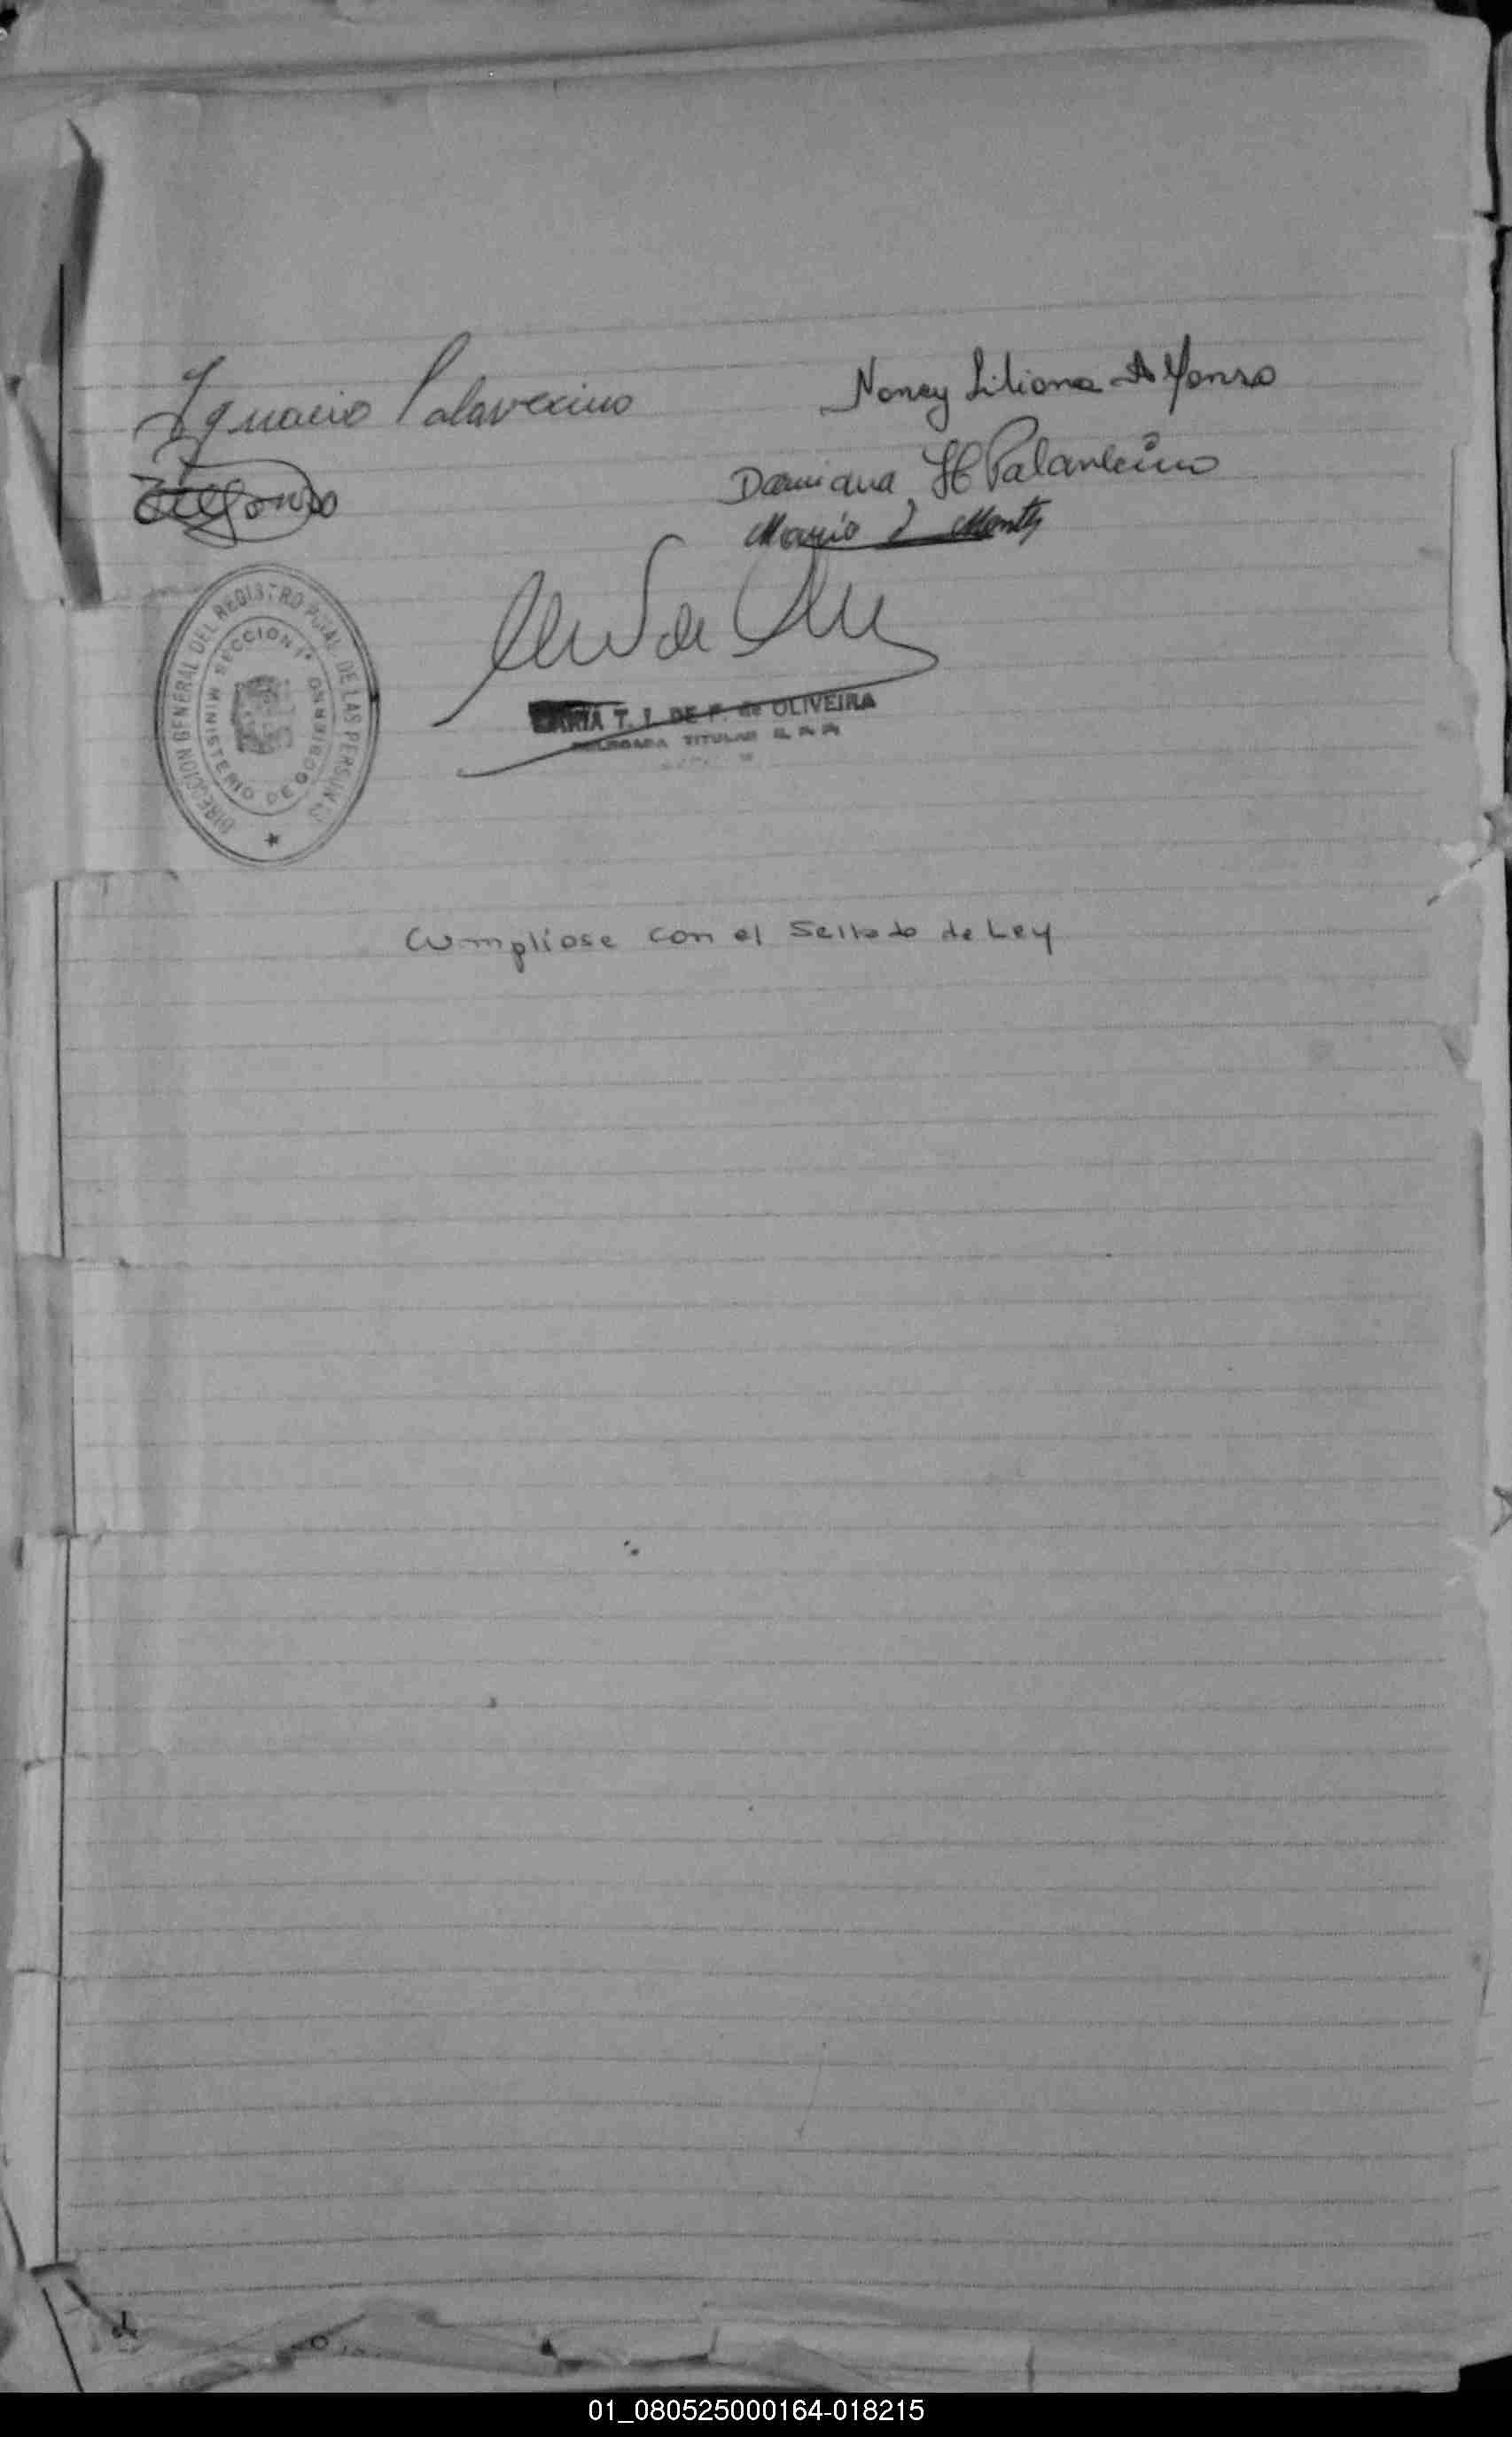 Ignacio Palavecino
Nancy Liliana Alfonso
Damiana H Palavecino
Alfonso
Mario
DIRECCION GENERAL DEL REGISTRO DE LAS PERSONAS
MINISTERIO DE GOBIERNO
SECCION 1ª
MARIA T. I. DE F. de OLIVEIRA
TITULAR
Cumpliose con el Sellado de Ley
01_080525000164-018215